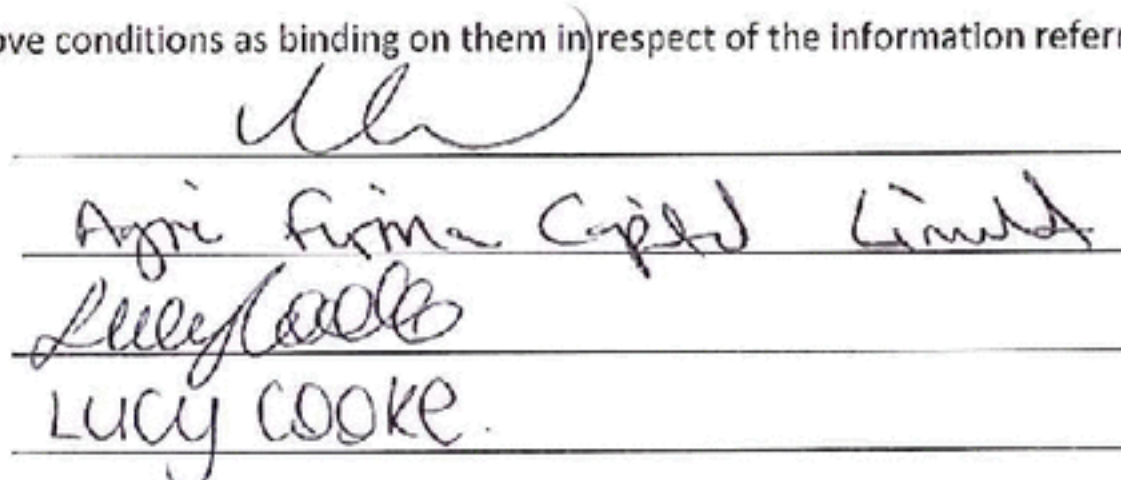 ove conditions as binding on them in respect of the information referr
Agri Firma Capital Limited
Lucy Cooke
LUCY COOKE.